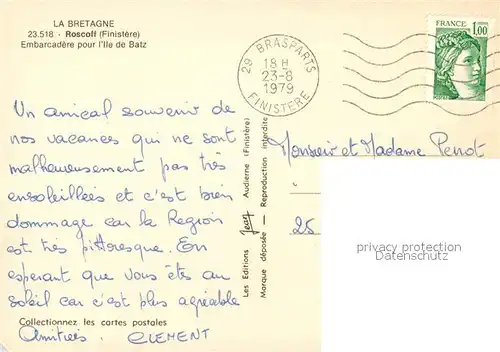 LA BRETAGNE
23.518 - Roscoff (Finistère)
Embarcadère pour l'Ile de Batz
29 BRASPARTS
18 H
23-8
1979
FINISTERE
FRANCE
1,00
POSTES
Un amical souvenir de
nos vacances qui ne sont
malheureusement pas très
ensoleillées et c'est bien
dommage car la Region
est très pittoresque. En
esperant que vous êtes au
soleil car c'est plus agréable
Amitiés. CLEMENT
Collectionnez les cartes postales
Les Editions Jean Audierne (Finistère)
Marque déposée — Reproduction interdite
Monsieur et Madame Perrot
25
privacy protection
Datenschutz